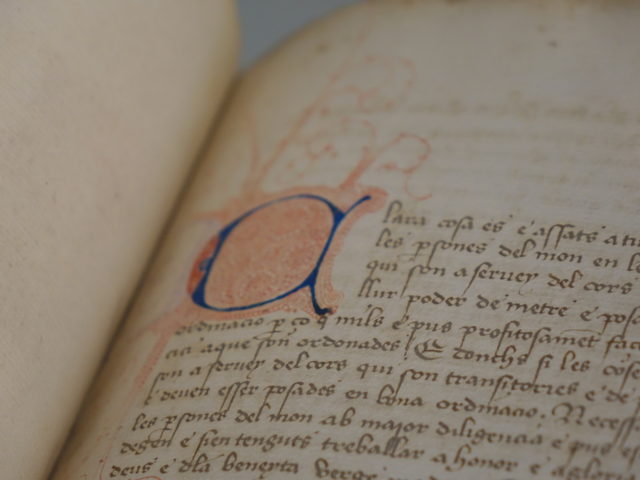 Clara cosa es e assats a tu
les psones del mon en la
qui son a servey del cors
llur poder de metre e posa
ordinacio p ço q mils e pus profitosamet fac
cici a que son ordonades E donchs si les cose
son a servey del cors qui son transitories e de
e deven esser posades en bona ordinacio. Necess
les psones del mon ab major diligencia e pus e
degen e sien tenguts treballar a honor e a gloria
deus e dla beneyta verge